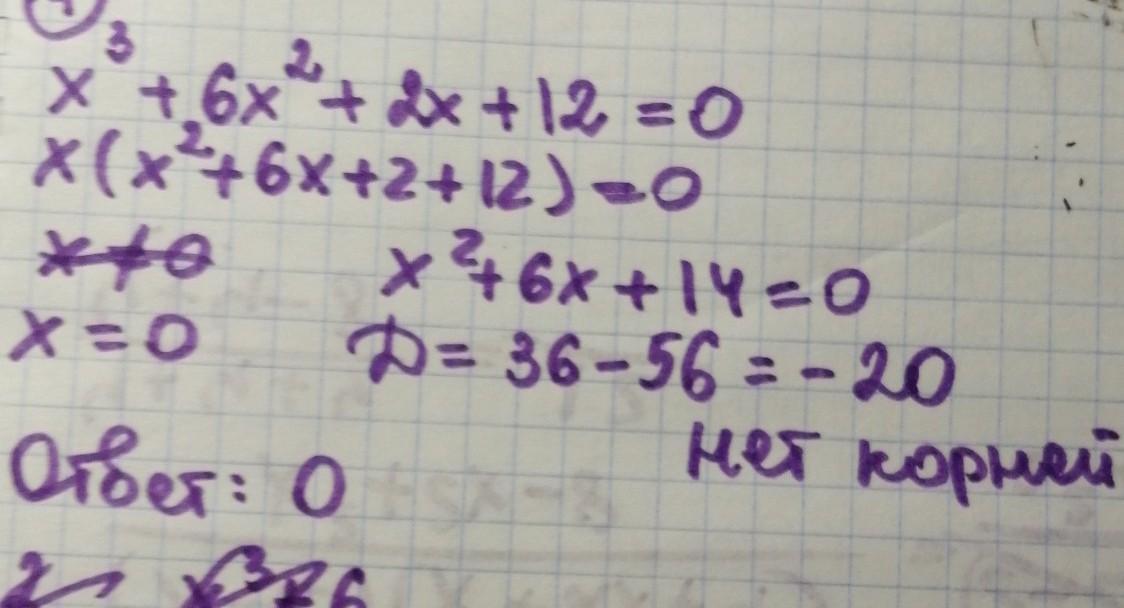 1
x³ + 6x² + 2x + 12 = 0
x(x² + 6x + 2 + 12) = 0
x ≠ 0 x² + 6x + 14 = 0
x = 0 D = 36 - 56 = -20
нет корней
Ответ: 0